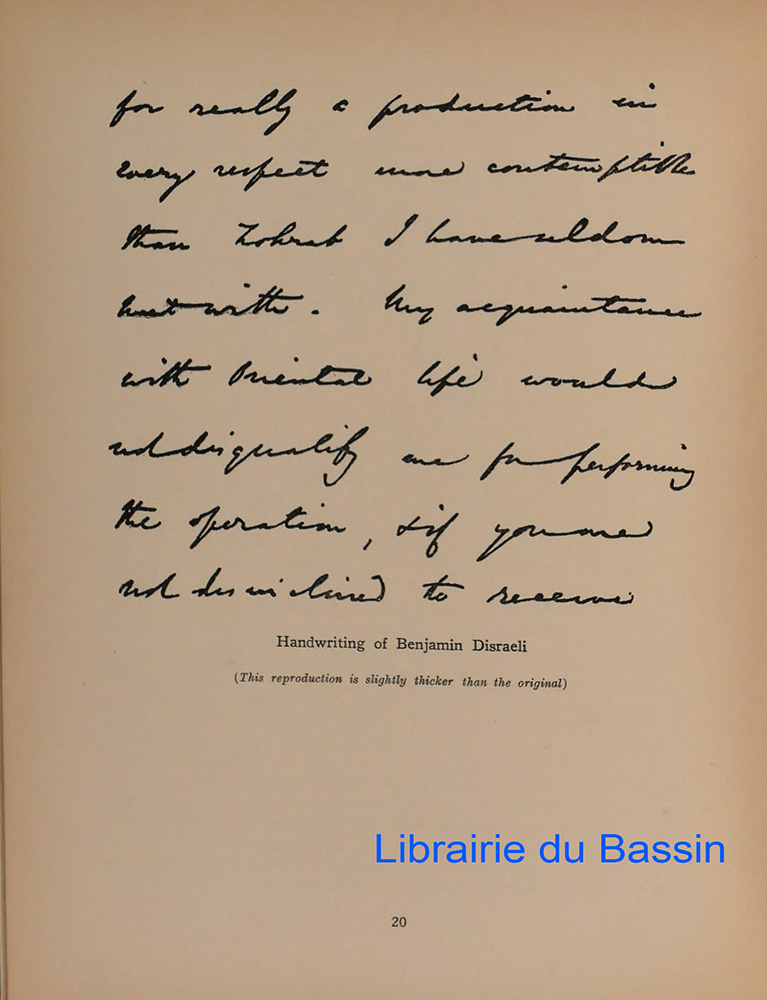 for really a production in
every respect more contemptible
than Zohrab I have seldom
met with. My acquaintance
with Oriental life would
not disqualify me for performing
the operation, & if you are
not disinclined to receive
Handwriting of Benjamin Disraeli
(This reproduction is slightly thicker than the original)
Librairie du Bassin
20